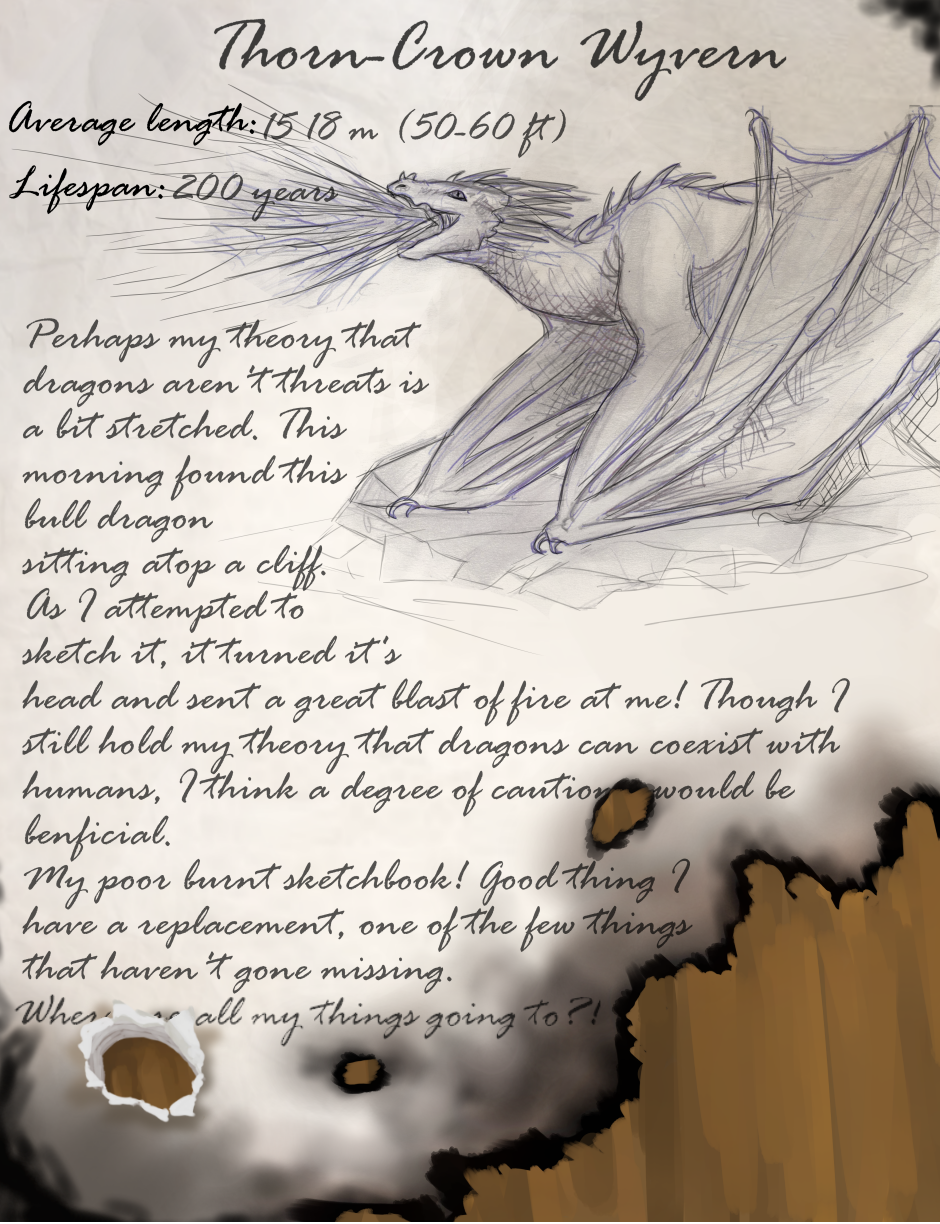 Thorn-Crown Wyvern
Average length: 15 18 m (50-60 ft)
Lifespan: 200 years
Perhaps my theory that
dragons aren't threats is
a bit stretched. This
morning found this
bull dragon
sitting atop a cliff.
As I attempted to
sketch it, it turned it's
head and sent a great blast of fire at me! Though I
still hold my theory that dragons can coexist with
humans, I think a degree of caution would be
benficial.
My poor burnt sketchbook! Good thing I
have a replacement, one of the few things
that haven't gone missing.
all my things going to?!